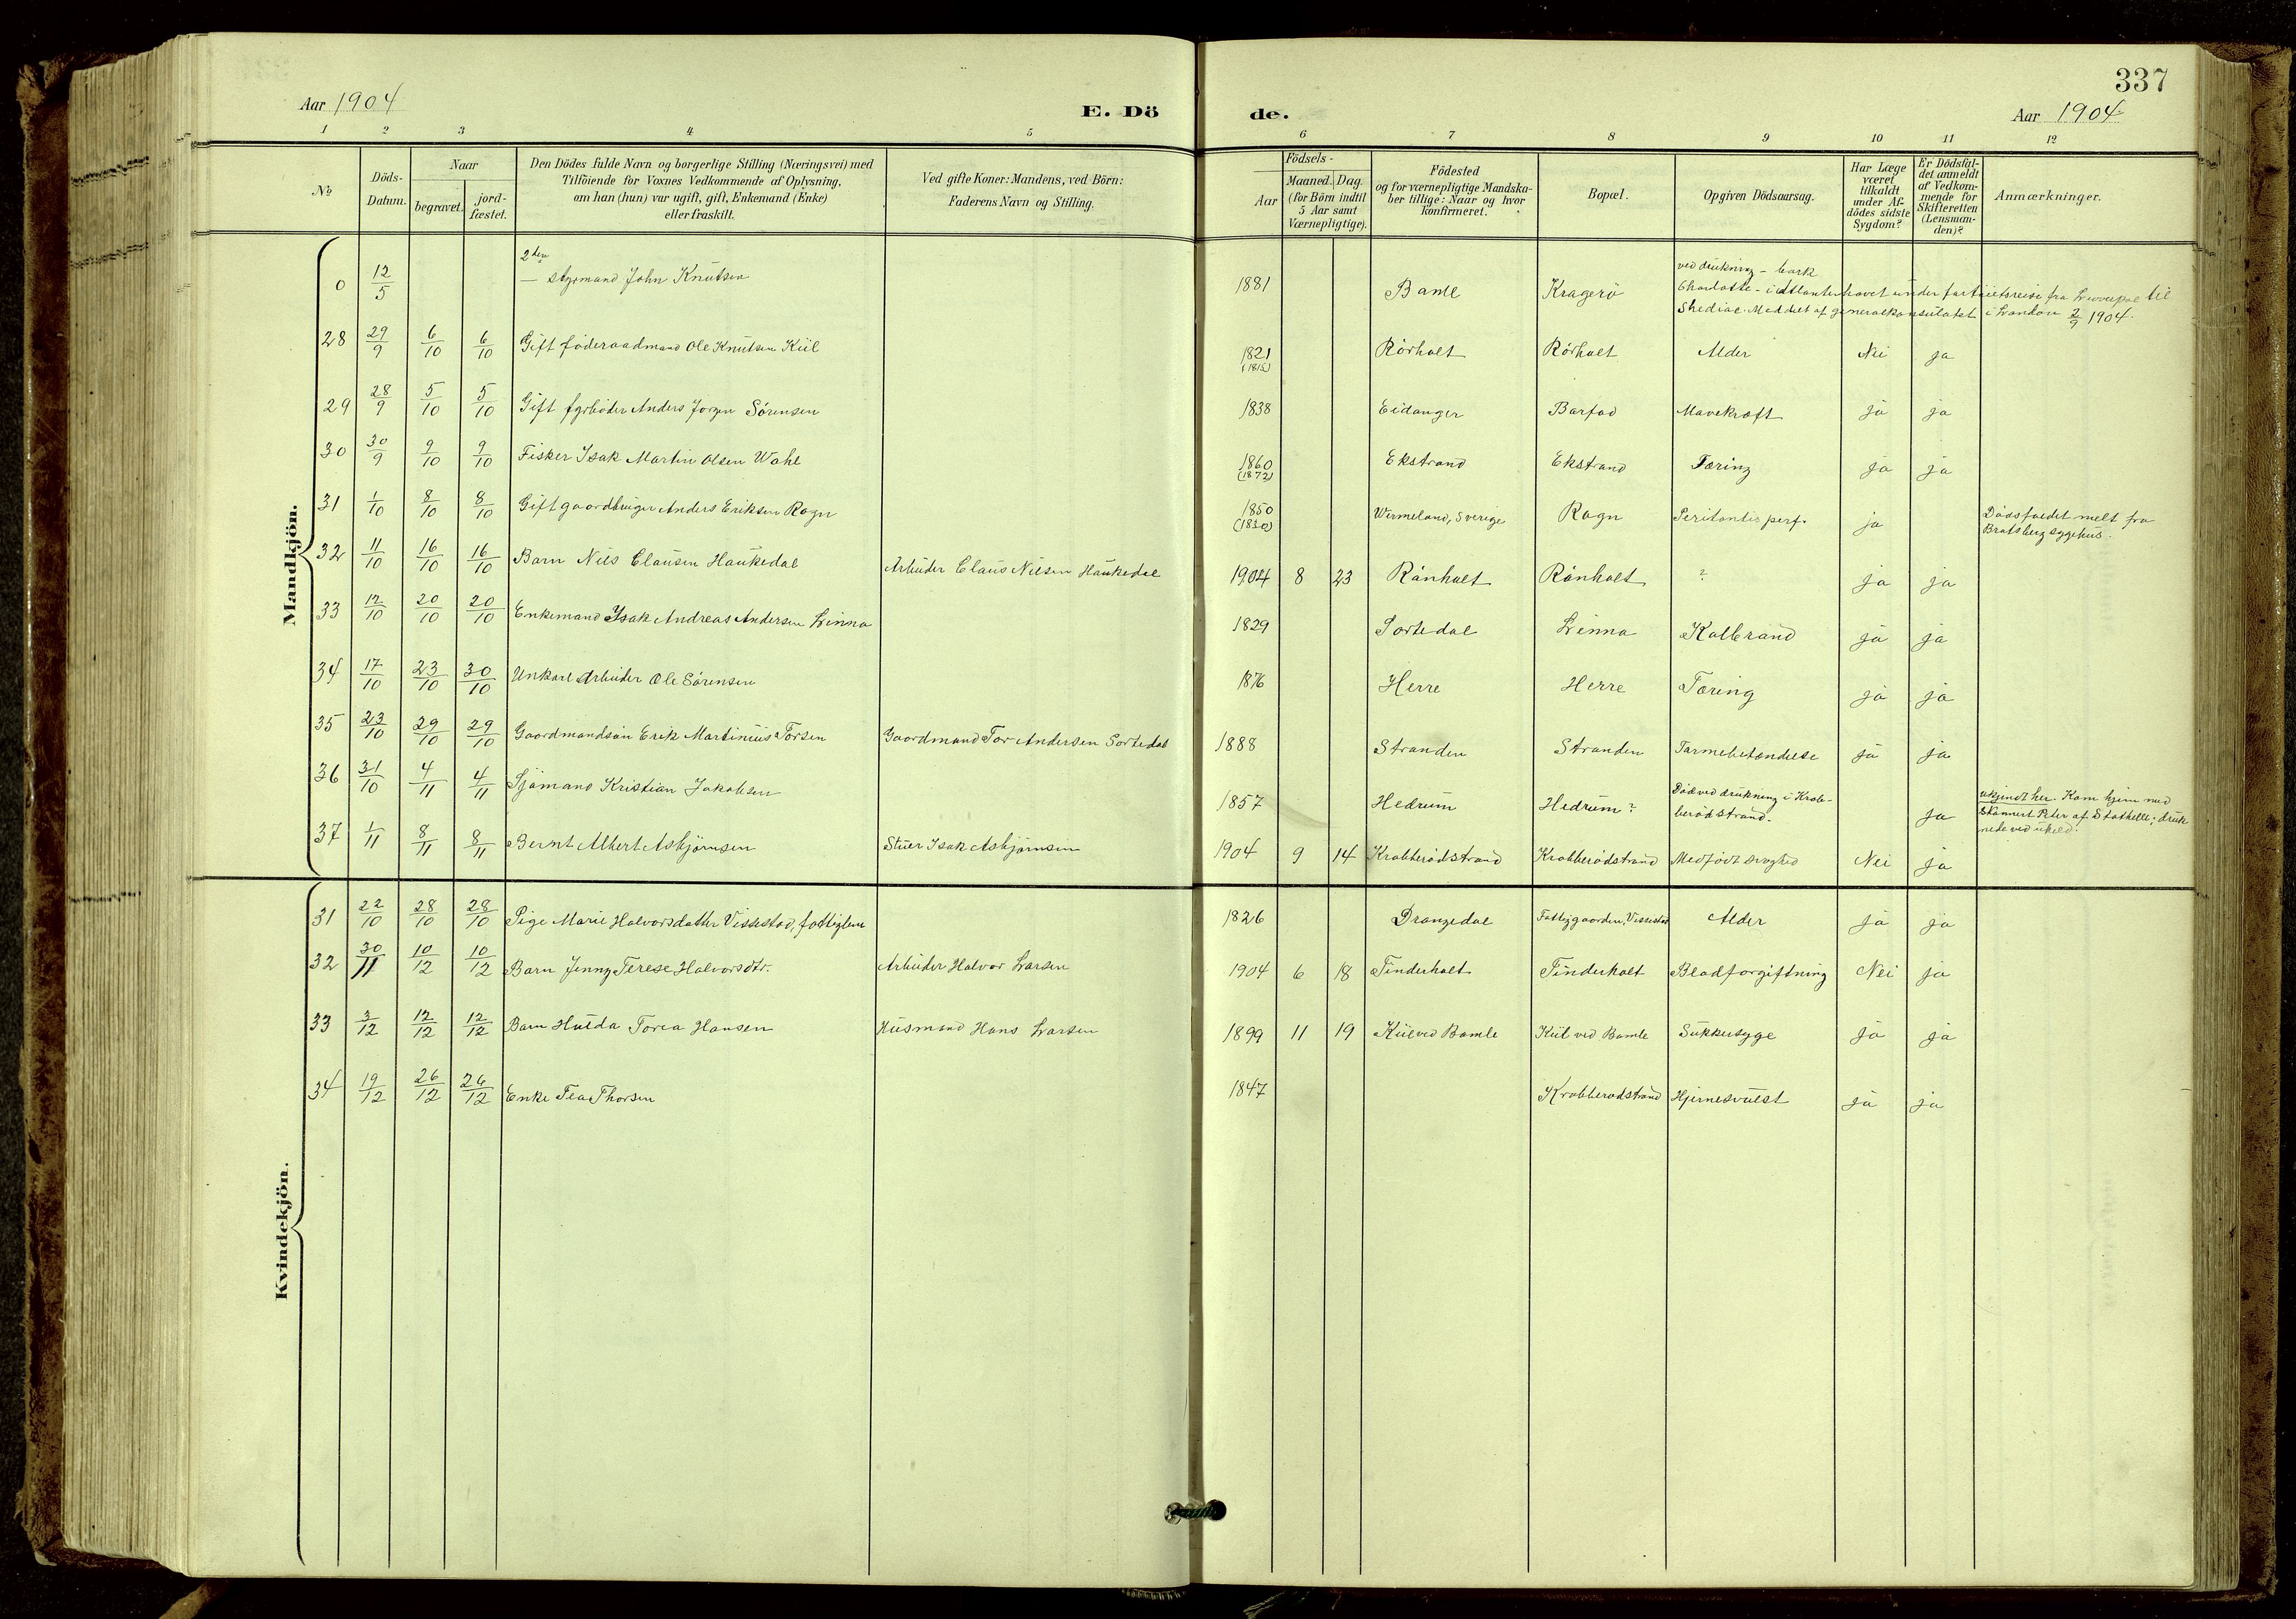 337
Aar 1904
E. Dö
de.
Aar 1904
1 2 3 4 5 6 7 8 9 10 11 12
No
Döds-Datum.
Naar
begravet. jord-fæstet.
Den Dödes fulde Navn og borgerlige Stilling (Næringsvei) med
Tilföiende for Voxnes Vedkommende af Oplysning,
om han (hun) var ugift, gift, Enkemand (Enke)
eller fraskilt.
Ved gifte Koner: Mandens, ved Börn:
Faderens Navn og Stilling.
Födsels-
Aar
Maaned. Dag.
(for Börn indtil
5 Aar samt
Værnepligtige).
Födested
og for værnepligtige Mandska-
ber tillige: Naar og hvor
konfirmeret.
Bopæl.
Opgiven Dödsaarsag.
Har Læge
været
tilkaldt
under Af-
dödes sidste
Sygdom?
Er Dödsfal-
det anmeldt
af Vedkom-
mende for
Skifteretten
(Lensman-
den)?
Anmærkninger.
Mandkjön.
0 12/5 2den — styrmand John Knutsen 1881 Bamle Kragerö ved drukning - bark
Charlotte - i Atlanterhavet under fart reise fra Liverpool til
Shediac. Meddelt af generalkonsulatet i London 2/9 1904.
28 29/9 6/10 6/10 Gift föderaadmand Ole Knutsen Kiil 1821 (1815) Rörholt Rörholt Alder Nei ja
29 28/9 5/10 5/10 Gift fyrböder Anders Jörgen Sörensen 1838 Eidanger Barfod Mavekræft ja ja
30 30/9 9/10 9/10 Fisker Isak Martin Olsen Wahl 1860 (1872) Ekstrand Ekstrand Tæring ja ja
31 1/10 8/10 8/10 Gift gaardbruger Anders Eriksen Rogn 1850 (1830) Wermeland, Sverige Rogn Peritonitis perf. ja Dödsfaldet melt fra
Bratsberg sygehus.
32 11/10 16/10 16/10 Barn Nils Clausen Haukedal Arbeider Claus Nilsen Haukedal 1904 8 23 Rönholt Rönholt ? ja ja
33 12/10 20/10 20/10 Enkemand Isak Andreas Andersen Linna 1829 Sortedal Linna Kolbrand ja ja
34 17/10 23/10 30/10 Unkarl Arbeider Ole Sörensen 1876 Herre Herre Tæring ja ja
35 23/10 29/10 29/10 Gaardmandsön Erik Martinius Torsen Gaardmand Tor Andersen Sortedal 1888 Stranden Stranden Tarmebetændelse ja ja
36 31/10 4/11 4/11 Sjömand Kristian Jakobsen 1857 Hedrum Hedrum? Död ved drukning i Krob-
berödstrand. ja ukjendt her. Kom hjem med
skonnert Peter af Stathelle; druk-
nede ved uheld.
37 1/11 8/11 8/11 Bernt Albert Asbjörnsen Stuer Isak Asbjörnsen 1904 9 14 Krobberödstrand Krobberödstrand Medfödt svaghed Nei ja
Kvindekjön.
31 22/10 28/10 28/10 Pige Marie Halvorsdatter Vissestad, fattiglem 1826 Drangedal Fattiggaarden, Vissestad Alder ja ja
32 30/11 10/12 10/12 Barn Jenny Terese Halvorsdtr. Arbeider Halvor Larsen 1904 6 18 Tinderholt Tinderholt Blodforgiftning Nei ja
33 3/12 12/12 12/12 Barn Hulda Torea Hansen Husmand Hans Larsen 1899 11 19 Kiil ved Bamle Kiil ved Bamle Sukkersyge ja ja
34 19/12 26/12 26/12 Enke Tea Thorsen 1847 Krobberodstrand Hjernesvulst ja ja